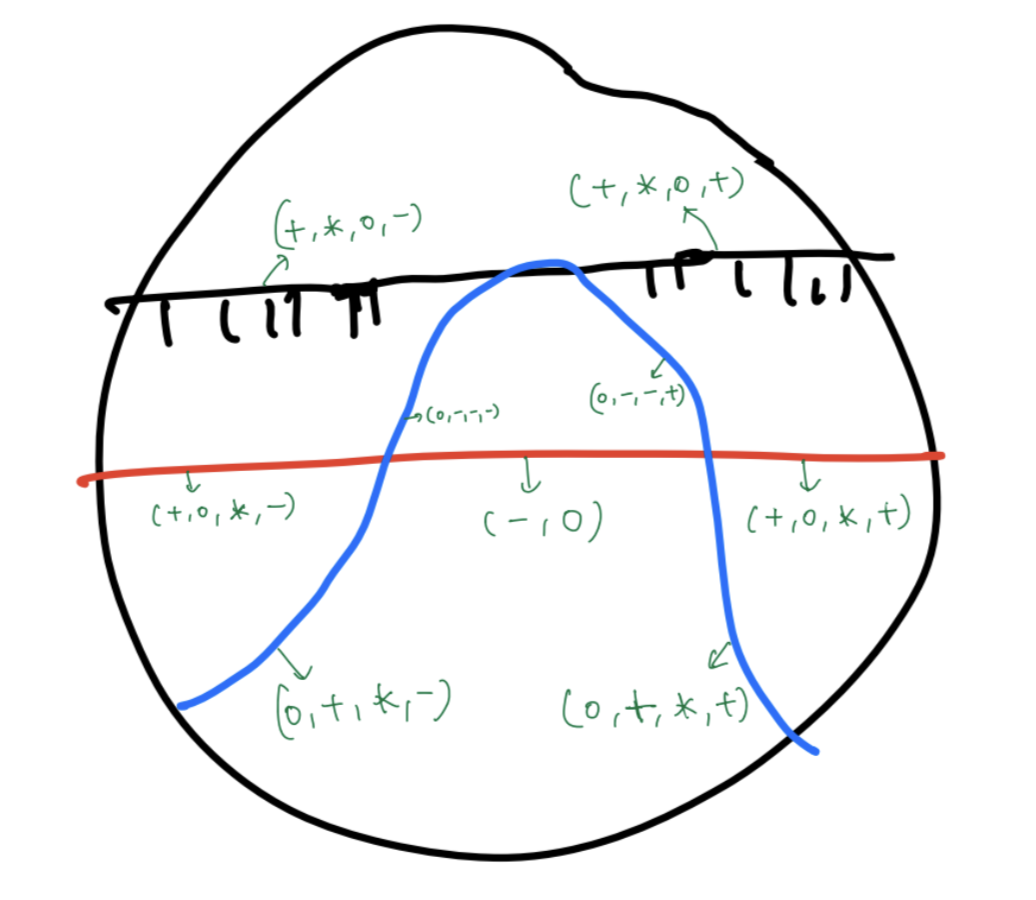 (+,*,0,+)
(+,*,0,-)
(0,-,-,+)
(0,-,-,-)
(+,0,*,-)
(-,0)
(+,0,*,+)
(0,+,*,-)
(0,+,*,+)